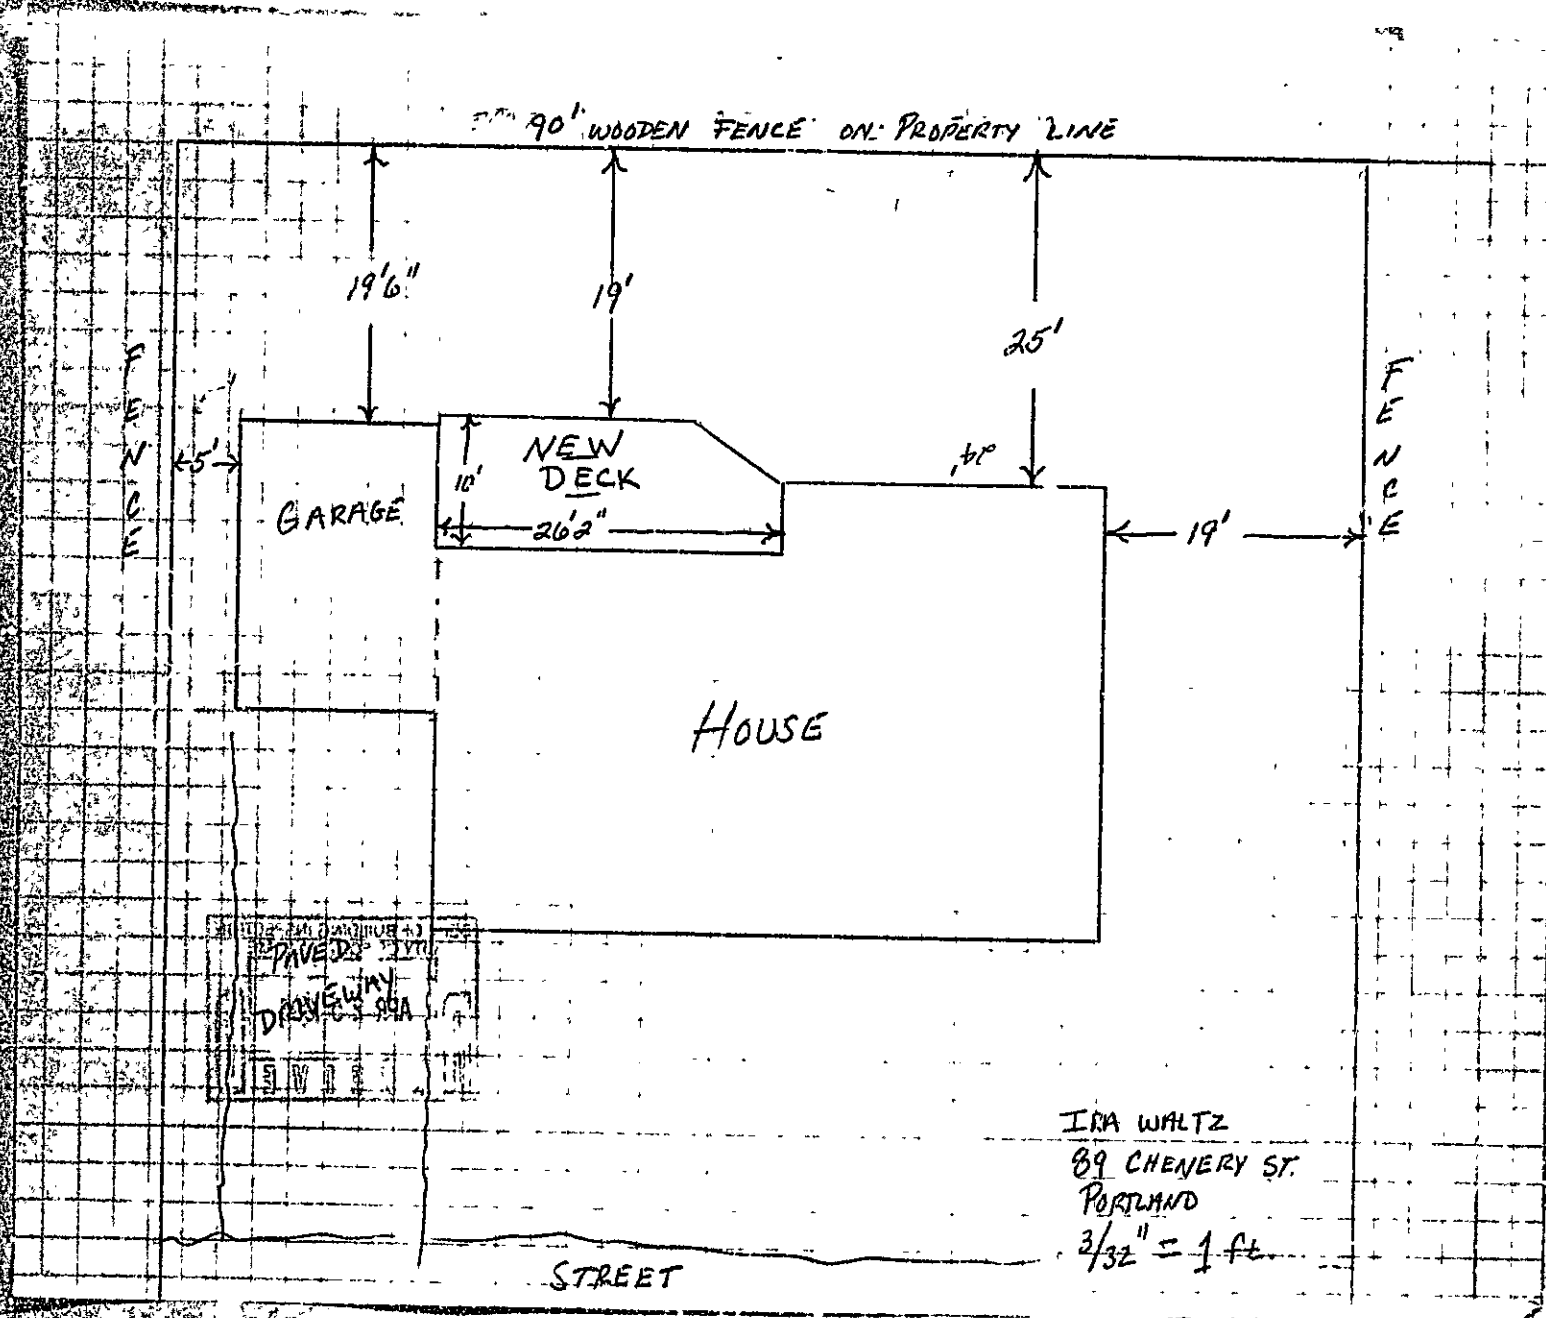 90' WOODEN FENCE ON PROPERTY LINE
19'6"
19'
25'
FENCE
FENCE
5'
GARAGE
10'
NEW
DECK
26'2"
24'
19'
HOUSE
PAVED
DRIVEWAY
IRA WALTZ
89 CHENERY ST.
PORTLAND
3/32" = 1 ft.
STREET